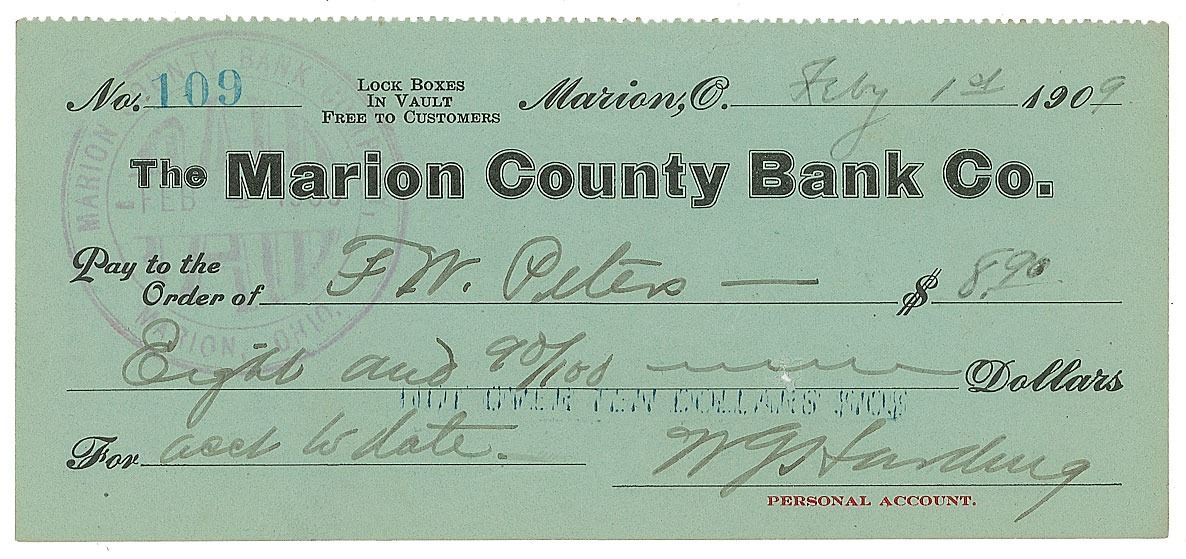 No. 109
LOCK BOXES
IN VAULT
FREE TO CUSTOMERS
Marion, O. Feby 1st 1909
The Marion County Bank Co.
Pay to the
Order of F W. Peters — $ 8.90
Eight and 90/100 Dollars
NOT OVER TEN DOLLARS $10$
For acct to date.
WG Harding
PERSONAL ACCOUNT.
MARION COUNTY BANK
PAID
FEB
MARION, OHIO.